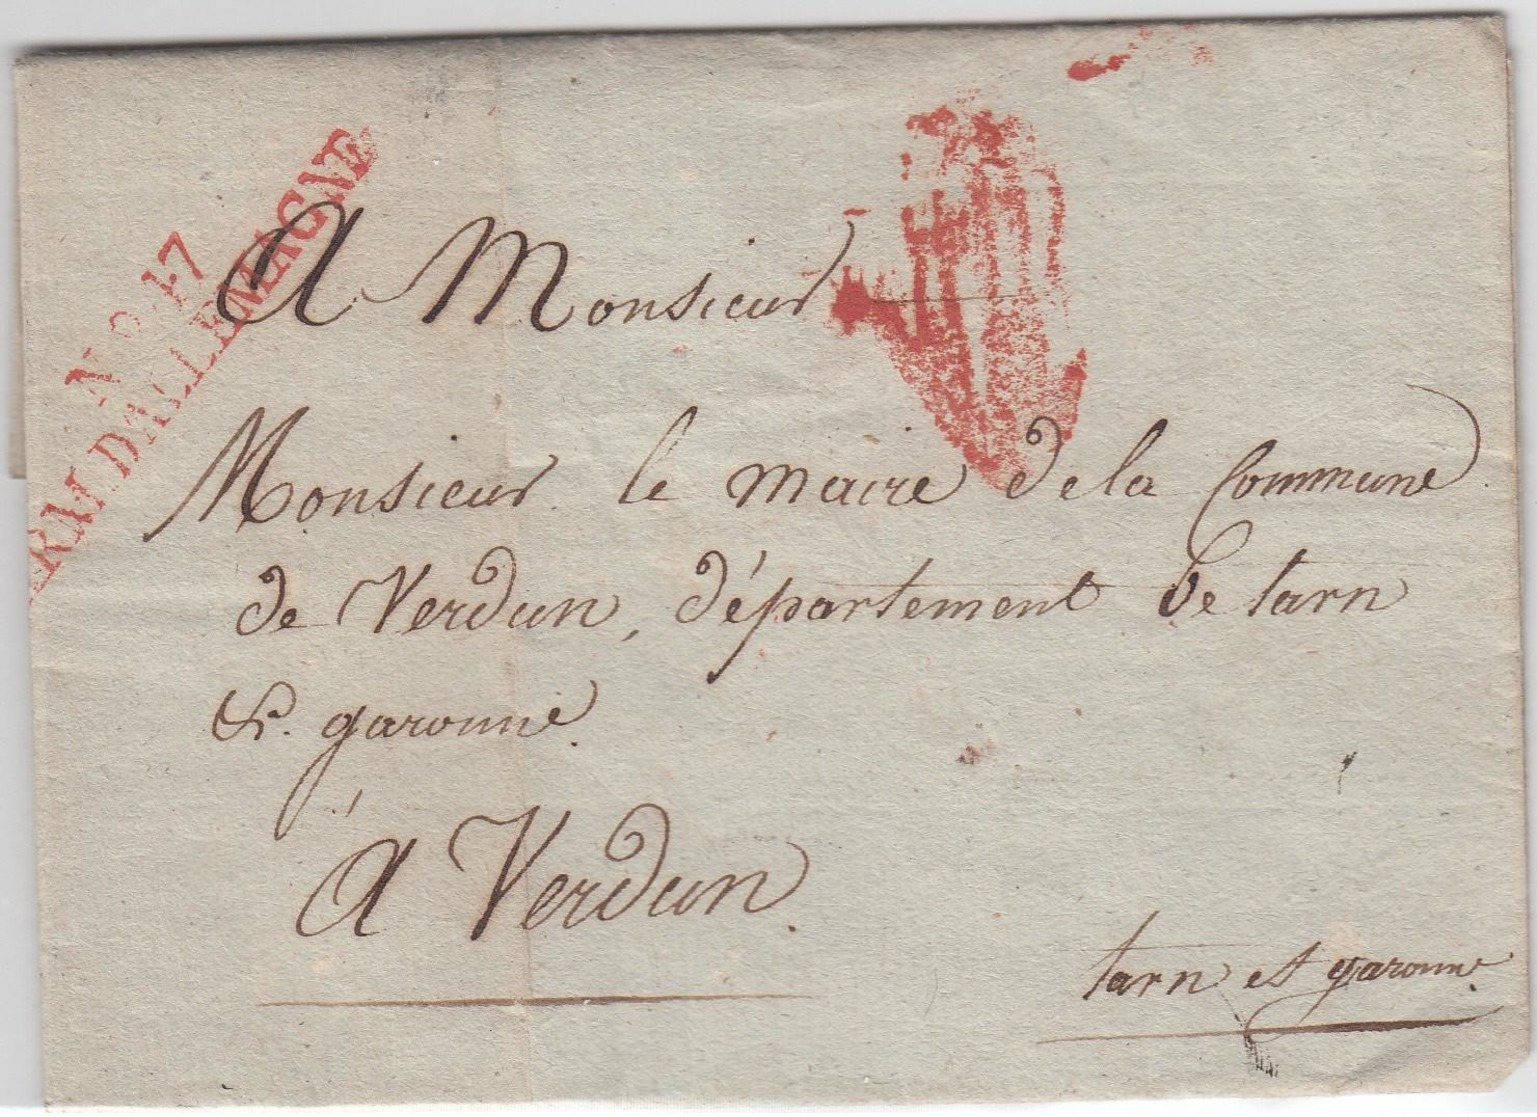 No. 17
ARM. D'ALLEMAGNE
A Monsieur
Monsieur le maire de la Commune
de Verdun, département de tarn
& garonne.
à Verdun.
tarn et garonne.